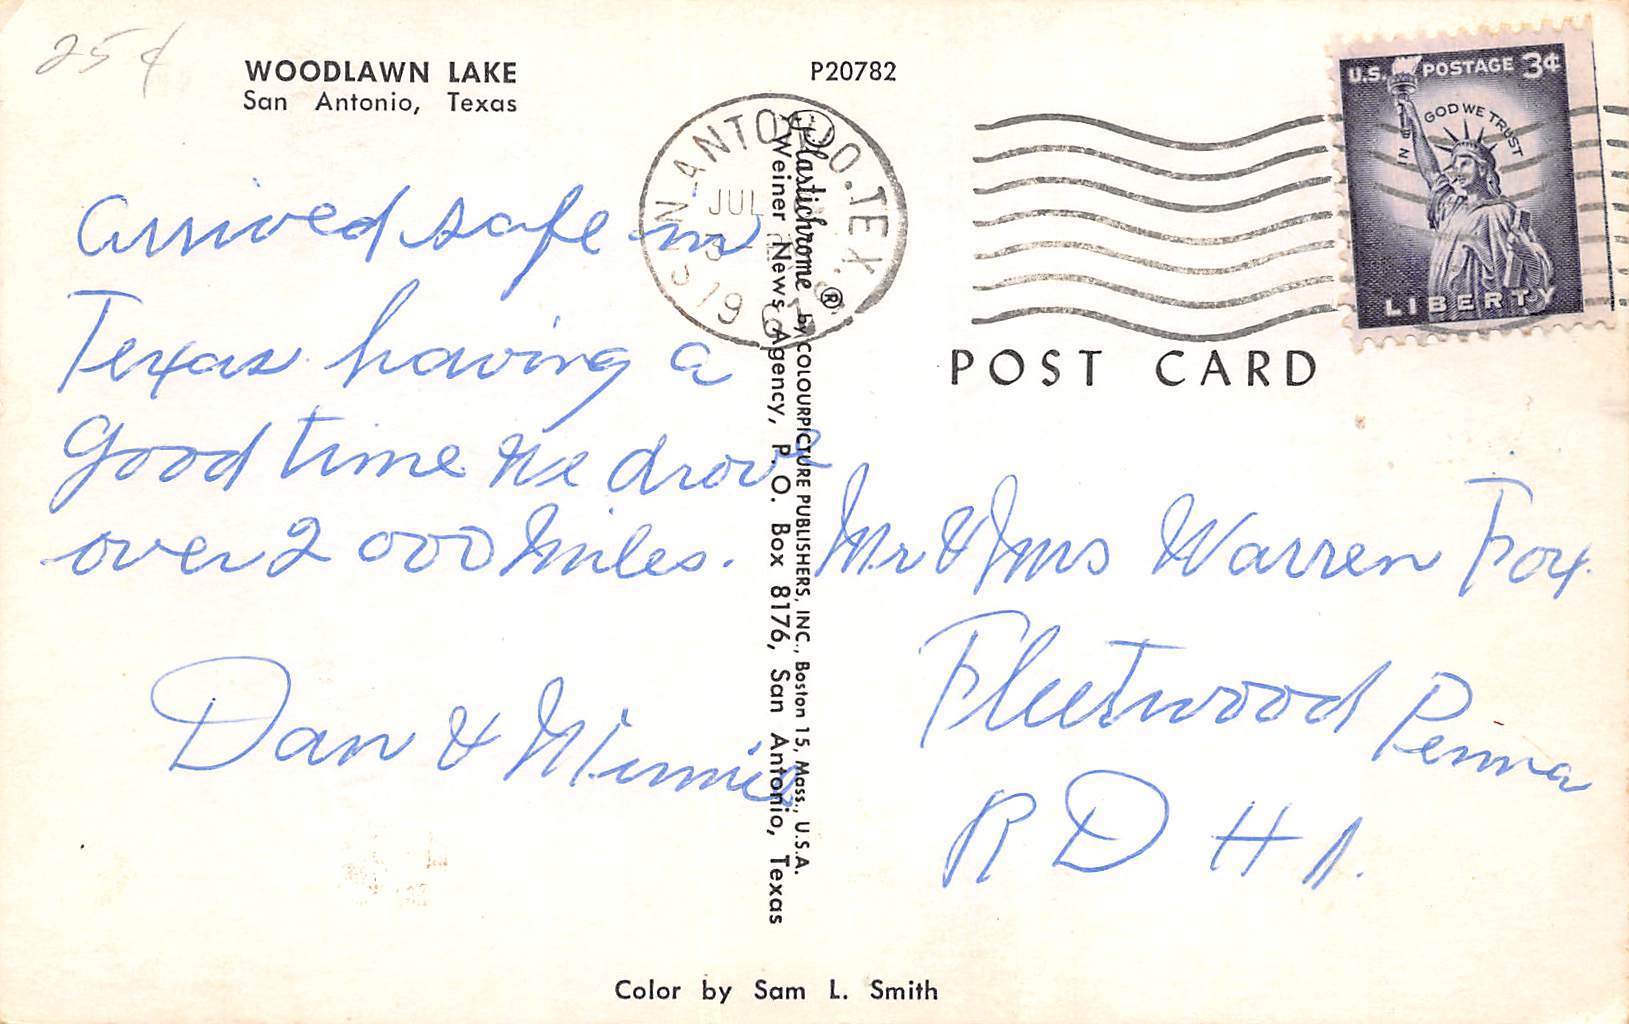 25¢
WOODLAWN LAKE
San Antonio, Texas
P20782
SAN ANTONIO. TEX.
JUL
19
U.S. POSTAGE 3¢
IN GOD WE TRUST
LIBERTY
POST CARD
Arrived safe in
Texas having a
Good time We drove
over 2000 Miles.
Dan & Minnie
Plastichrome ® by COLOURPICTURE PUBLISHERS, INC., Boston 15, Mass., U.S.A.
Weiner News Agency, P. O. Box 8176, San Antonio, Texas
Mr & Mrs Warren Fox.
Fleetwood Penna
R D # 1.
Color by Sam L. Smith